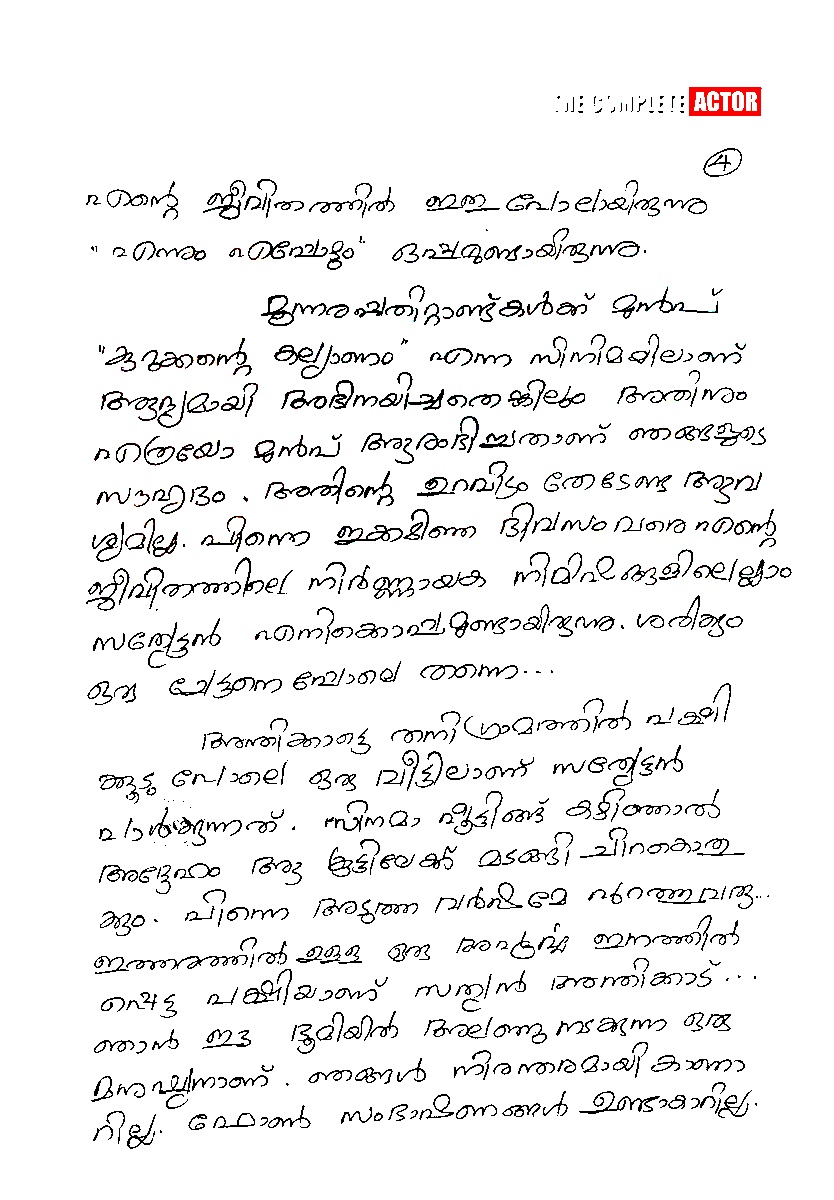 THE COMPLETE ACTOR
4
എന്റെ ജീവിതത്തിൽ ഇതു പോലായിരുന്നു
"എന്നും എപ്പോഴും" ഒപ്പമുണ്ടായിരുന്നു.
മൂന്നരപ്പതിറ്റാണ്ടുകൾക്ക് മുൻപ്
"കുറുക്കന്റെ കല്യാണം" എന്ന സിനിമയിലാണ്
ആദ്യമായി അഭിനയിച്ചതെങ്കിലും അതിനും
എത്രയോ മുൻപ് ആരംഭിച്ചതാണ് ഞങ്ങളുടെ
സൗഹൃദം. അതിന്റെ ഉറവിടം തേടേണ്ട ആവ
ശ്യമില്ല. പിന്നെ ഇക്കഴിഞ്ഞ ദിവസം വരെ എന്റെ
ജീവിതത്തിലെ നിർണ്ണായക നിമിഷങ്ങളിലെല്ലാം
സത്യേട്ടൻ എനിക്കൊപ്പമുണ്ടായിരുന്നു. ശരിക്കും
ഒരു ചേട്ടനെപ്പോലെ തന്നെ...
അന്തിക്കാട്ടെ തനിഗ്രാമത്തിൽ പക്ഷി
ക്കൂടു പോലെ ഒരു വീട്ടിലാണ് സത്യേട്ടൻ
പാർക്കുന്നത്. സിനിമാ ഷൂട്ടിങ്ങ് കഴിഞ്ഞാൽ
അദ്ദേഹം ആ കൂട്ടിലേക്ക് മടങ്ങി ചിറകൊതു
ക്കും. പിന്നെ അടുത്ത വർഷമേ പുറത്തുവരൂ...
ഇത്തരത്തിൽ ഉള്ള ഒരു അപൂർവ്വ ഇനത്തിൽ
പ്പെട്ട പക്ഷിയാണ് സത്യൻ അന്തിക്കാട്...
ഞാൻ ഈ ഭൂമിയിൽ അലഞ്ഞു നടക്കുന്ന ഒരു
മനുഷ്യനാണ്. ഞങ്ങൾ നിരന്തരമായി കാണാ
റില്ല. ഫോൺ സംഭാഷണങ്ങൾ ഉണ്ടാകാറില്ല.